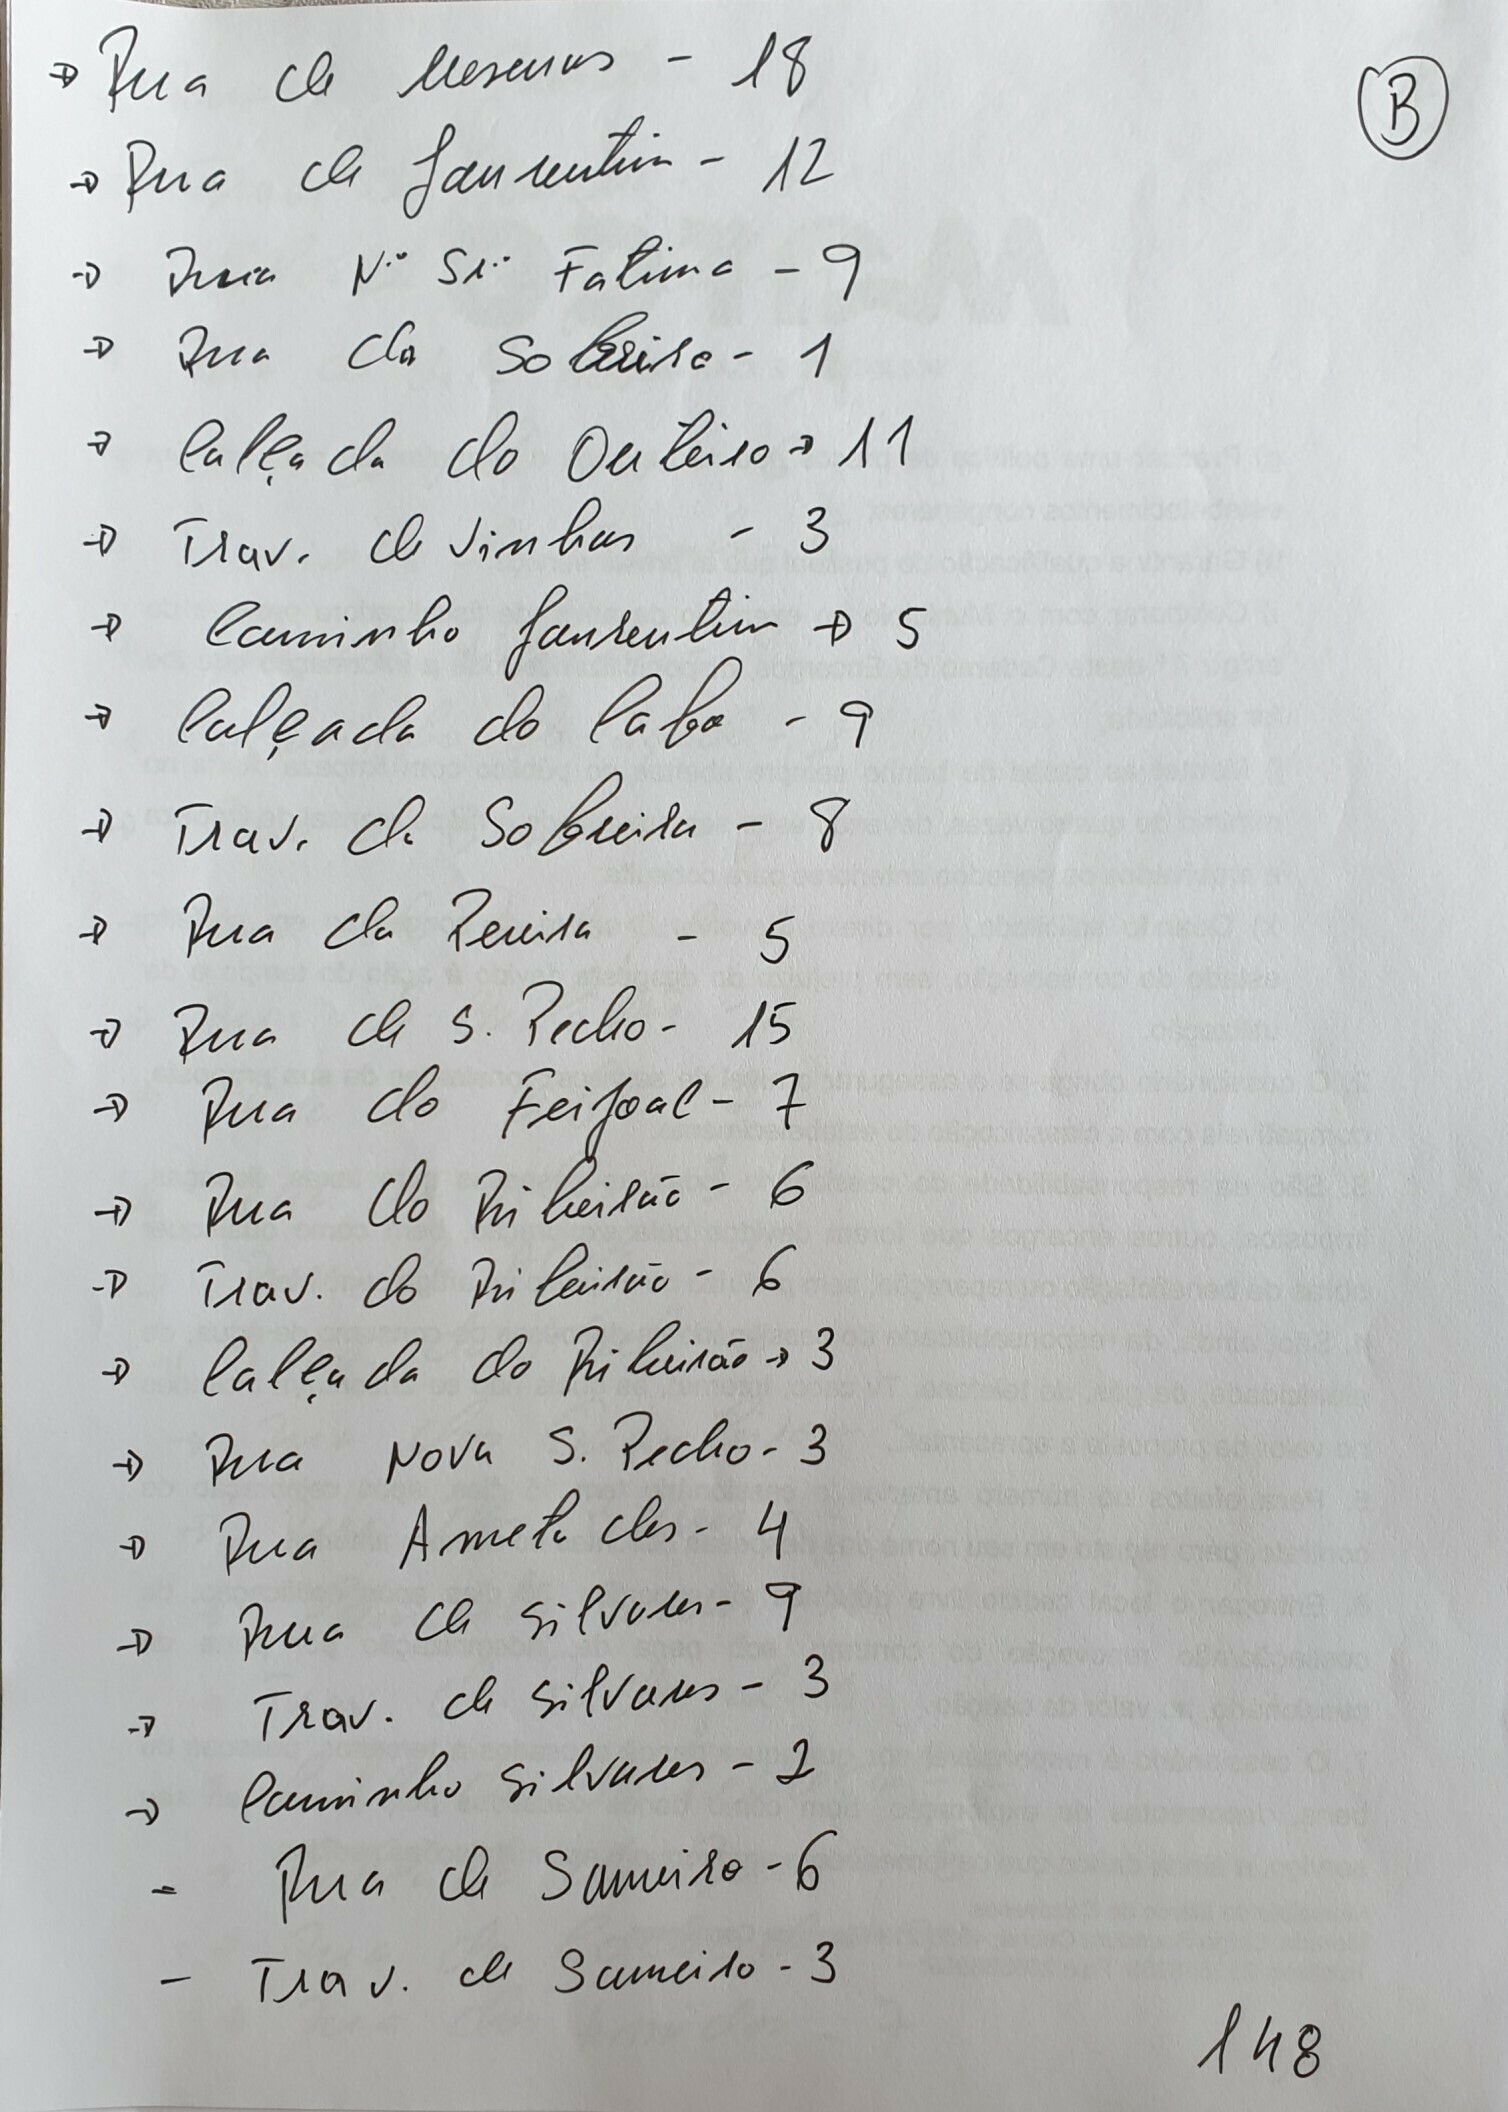 B
→ Rua de Mesuras - 18
→ Rua de Jansentim - 12
→ Rua Nª Srª Fatima - 9
→ Rua da Sobreira - 1
→ Calçada do Outeiro → 11
→ Trav. de Vinhas - 3
→ Caminho Jansentim → 5
→ Calçada do Cabo - 9
→ Trav. da Sobreira - 8
→ Rua da Pereira - 5
→ Rua de S. Pedro - 15
→ Rua do Feijoal - 7
→ Rua do Ribeirão - 6
→ Trav. do Ribeirão - 6
→ Calçada do Ribeirão → 3
→ Rua Nova S. Pedro - 3
→ Rua Ametades - 4
→ Rua de Silvares - 9
→ Trav. de Silvares - 3
→ Caminho Silvares - 2
- Rua de Sameiro - 6
- Trav. de Sameiro - 3
148